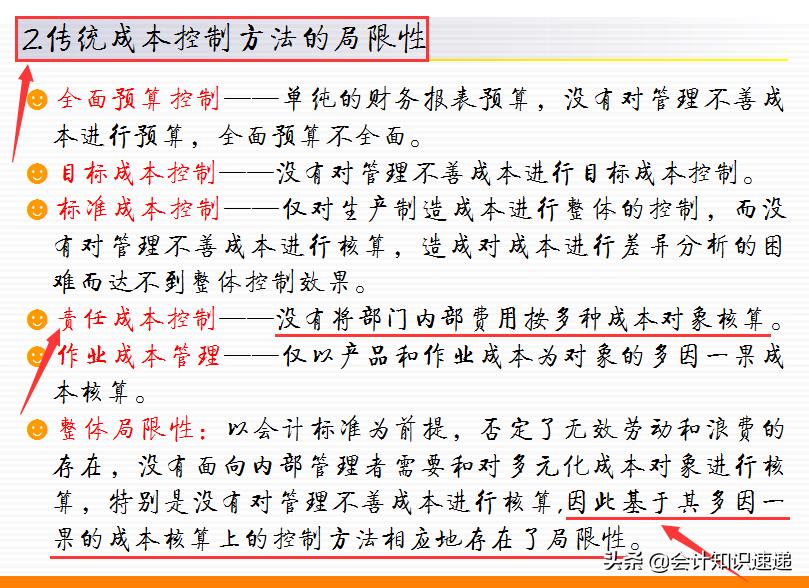 2.传统成本控制方法的局限性
全面预算控制——单纯的财务报表预算，没有对管理不善成
本进行预算，全面预算不全面。
目标成本控制——没有对管理不善成本进行目标成本控制。
标准成本控制——仅对生产制造成本进行整体的控制，而没
有对管理不善成本进行核算，造成对成本进行差异分析的困
难而达不到整体控制效果。
责任成本控制——没有将部门内部费用按多种成本对象核算。
作业成本管理——仅以产品和作业成本为对象的多因一果成
本核算。
整体局限性：以会计标准为前提，否定了无效劳动和浪费的
存在，没有面向内部管理者需要和对多元化成本对象进行核
算，特别是没有对管理不善成本进行核算,因此基于其多因一
果的成本核算上的控制方法相应地存在了局限性。
头条 @会计知识速递